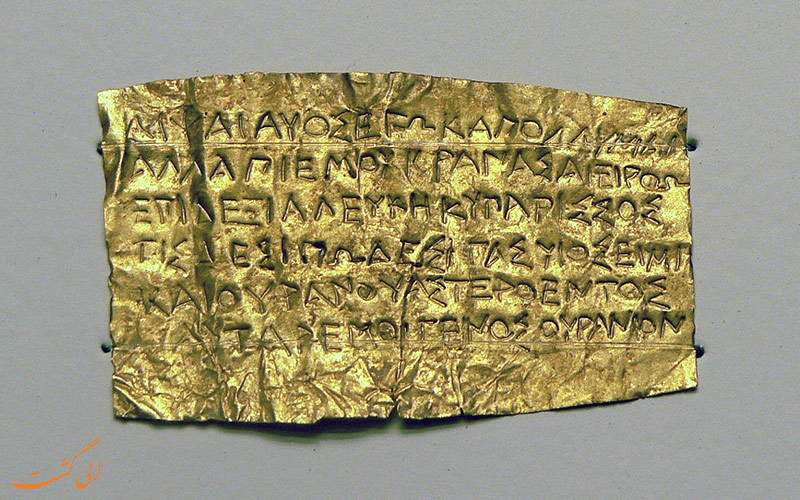 ΔΙΨΑΙΑΥΟΣΕΓΩΚΑΠΟΛΛΥΜΑΙ
ΑΛΛΑΠΙΕΜΟΥΚΡΑΝΑΣΑΙΕΙΡΟΩ
ΕΠΙΔΕΞΙΑΛΕΥΚΗΚΥΠΑΡΙΣΣΟΣ
ΤΙΣΔΕΣΙΠΩΔΕΣΙΓΑΣΥΙΟΣΕΙΜΙ
ΚΑΙΟΥΡΑΝΟΥΑΣΤΕΡΟΕΝΤΟΣ
ΑΥΤΑΡΕΜΟΙΓΕΝΟΣΟΥΡΑΝΙΟΝ
الی گشت